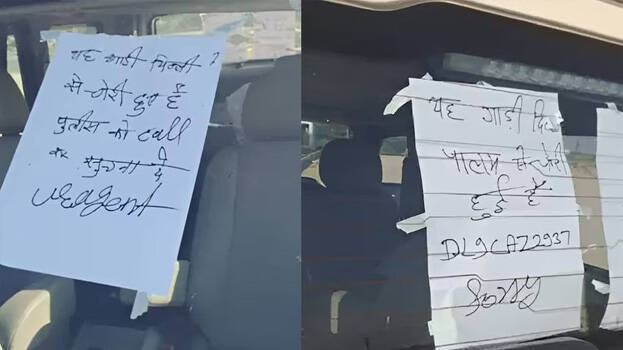 यह गाड़ी दिल्ली
से चोरी हुई है
पुलीस को call
कर सुचना दे
uragent
यह गाड़ी
पालम से चोरी
हुई है
DL9CAZ2937
Sorry